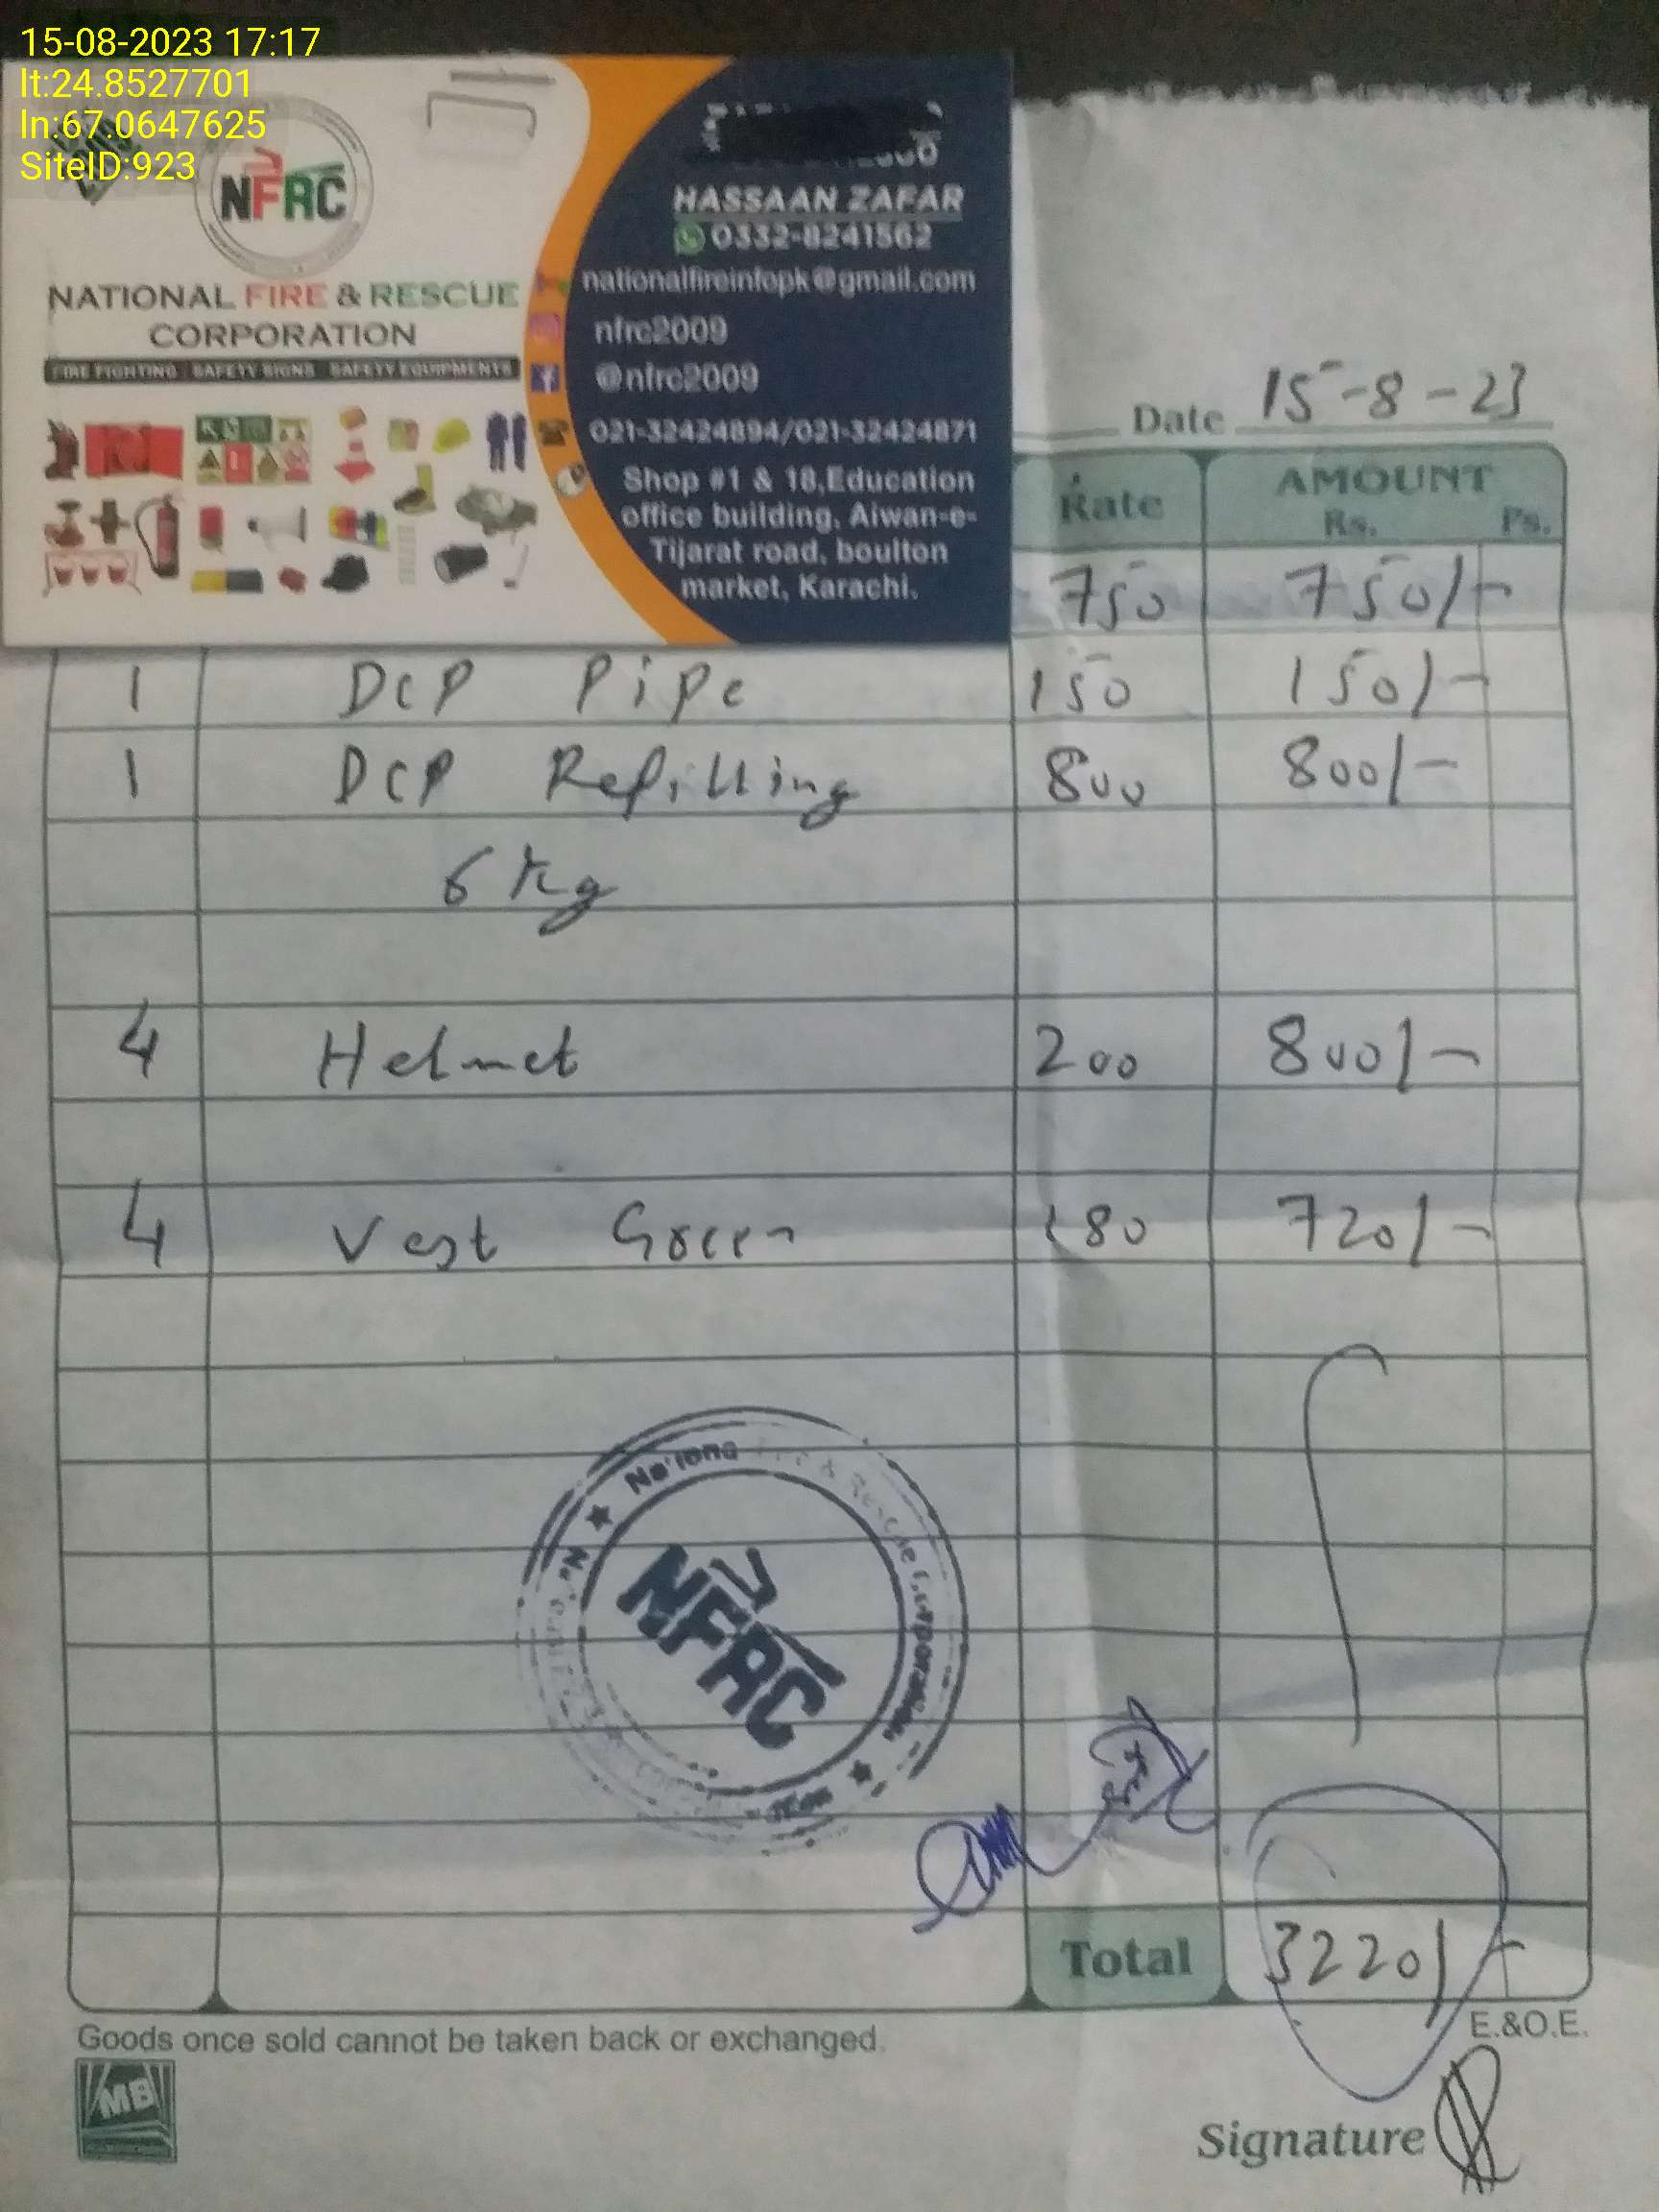 15-08-2023 17:17
lt:24.8527701
ln:67.0647625
SiteID:923
NFRC
NATIONAL FIRE & RESCUE
CORPORATION
FIRE FIGHTING SAFETY SIGNS SAFETY EQUIPMENTS
HASSAAN ZAFAR
0332-8241562
nationalfireinfopk@gmail.com
nfrc2009
@nfrc2009
021-32424894/021-32424871
Shop #1 & 18,Education
office building, Aiwan-e-
Tijarat road, boulton
market, Karachi.
Date 15-8-23
Rate AMOUNT
Rs. Ps.
750 750/-
1 DCP Pipe 150 150/-
1 DCP Refilling 800 800/-
6 Kg
4 Helmet 200 800/-
4 Vest Green 180 720/-
NFRC
Total 3220/-
Goods once sold cannot be taken back or exchanged.
E.&O.E.
MB
Signature